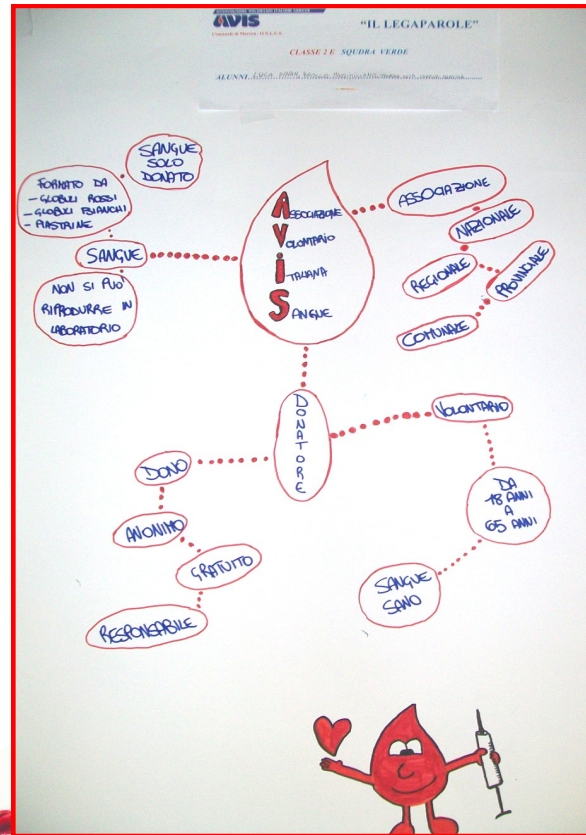 AVIS
"IL LEGAPAROLE"
CLASSE 2 E SQUDRA VERDE
ALUNNI
SANGUE
SOLO
DONATO
FORMATO DA
- GLOBULI ROSSI
- GLOBULI BIANCHI
- PIASTRINE
SANGUE
NON SI PUO'
RIPRODURRE IN
LABORATORIO
ASSOCIAZIONE
VOLONTARIO
ITALIANA
SANGUE
ASSOCIAZIONE
NAZIONALE
REGIONALE
PROVINCIALE
COMUNALE
DONATORE
VOLONTARIO
DA
18 ANNI
A
65 ANNI
SANGUE
SANO
DONO
ANONIMO
GRATUITO
RESPONSABILE